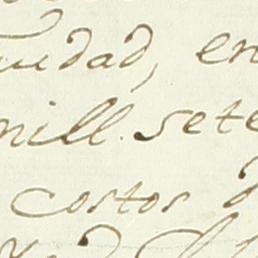 uidad, en
mill. sete
costos d